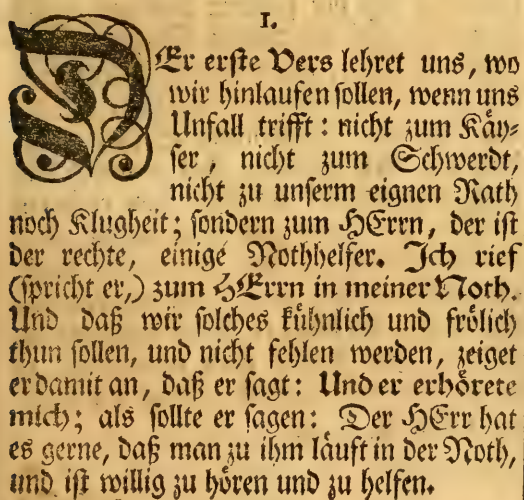 1.
DEr erste Vers lehret uns, wo
wir hinlaufen sollen, wenn uns
Unfall trifft: nicht zum Käy-
ser, nicht zum Schwerdt,
nicht zu unserm eignen Rath
noch Klugheit; sondern zum HErrn, der ist
der rechte, einige Nothhelfer. Ich rief
(spricht er,) zum HErrn in meiner Noth.
Und daß wir solches kühnlich und frölich
thun sollen, und nicht fehlen werden, zeiget
er damit an, daß er sagt: Und er erhörete
mich; als sollte er sagen: Der HErr hat
es gerne, daß man zu ihm läuft in der Noth,
und ist willig zu hören und zu helfen.